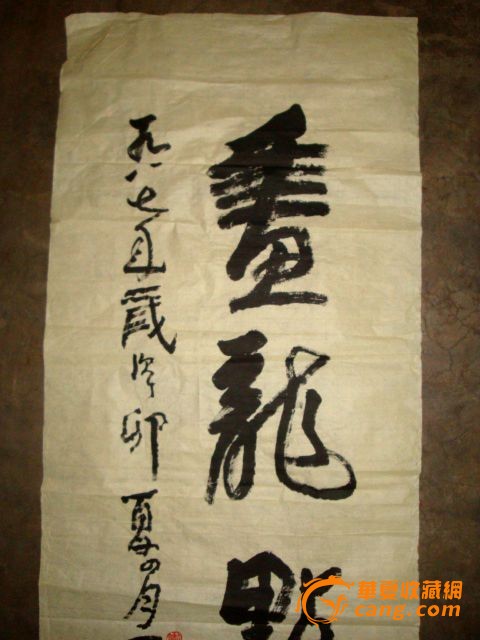 畫龍點
一九八七年歲次卯夏四月
華夏收藏網
cang.com